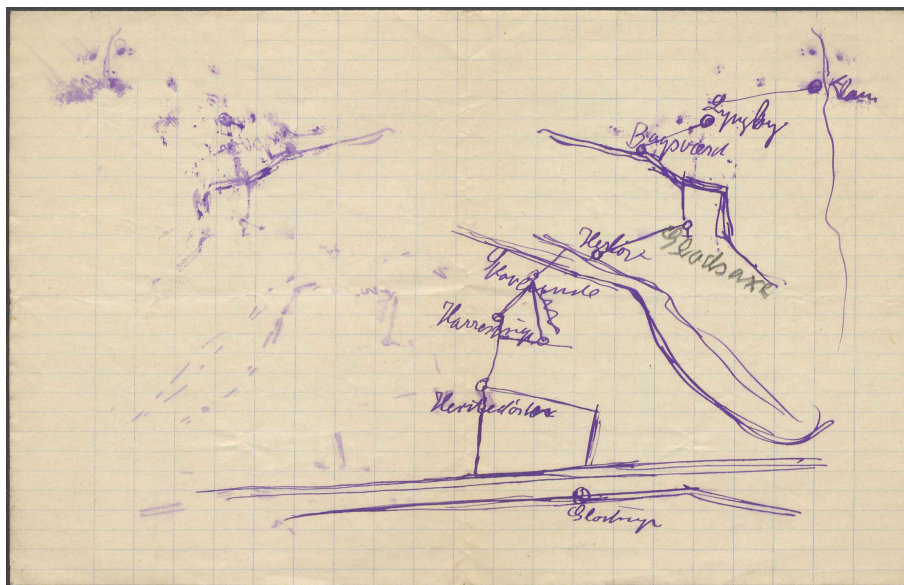 Klam
Lyngby
Bagsværd.
Herløv
Gladsaxe
Skovlunde
Harrestrup
Herstedöster
Glostrup